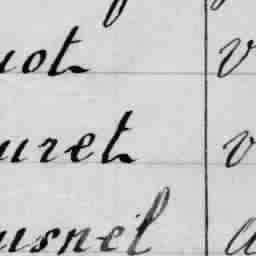 uot v
uret v
usnel a